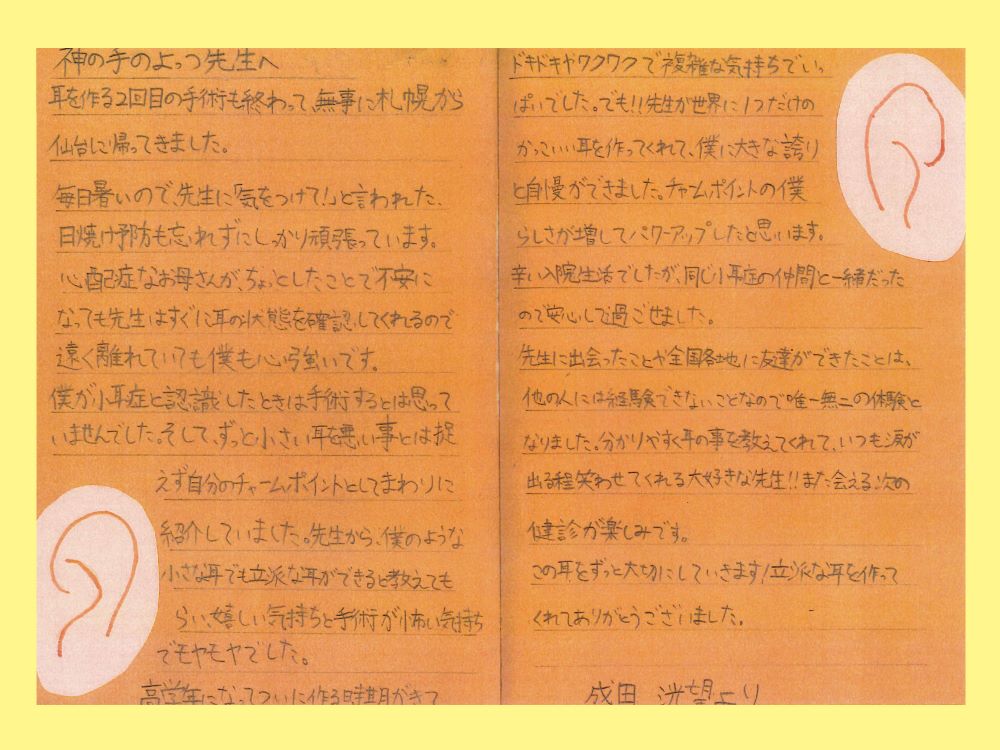 神の手のよっつ先生へ
耳を作る2回目の手術も終わって、無事に札幌から
仙台に帰ってきました。
毎日暑いので、先生に「気をつけて!」と言われた、
日焼け予防も忘れずにしっかり頑張っています。
心配症なお母さんが、ちょっとしたことで不安に
なっても先生はすぐに耳の状態を確認してくれるので
遠く離れていても僕も心強いです。
僕が小耳症と認識したときは手術するとは思って
いませんでした。そして、ずっと小さい耳を悪い事とは捉
えず自分のチャームポイントとしてまわりに
紹介していました。先生から、僕のような
小さな耳でも立派な耳ができると教えても
らい、嬉しい気持ちと手術が怖い気持ち
でモヤモヤでした。
高学年になってついに作る時期がきて
ドキドキやワクワクで複雑な気持ちでいっ
ぱいでした。でも!!先生が世界に1つだけの
かっこいい耳を作ってくれて、僕に大きな誇り
と自慢ができました。チャームポイントの僕
らしさが増してパワーアップしたと思います。
辛い入院生活でしたが、同じ小耳症の仲間と一緒だった
ので安心して過ごせました。
先生に出会ったことや全国各地に友達ができたことは、
他の人には経験できないことなので唯一無二の体験と
なりました。分かりやすく耳の事を教えてくれて、いつも涙が
出る程笑わせてくれる大好きな先生!!また会える次の
健診が楽しみです。
この耳をずっと大切にしていきます!立派な耳を作って
くれてありがとうございました。
成田 洸望より